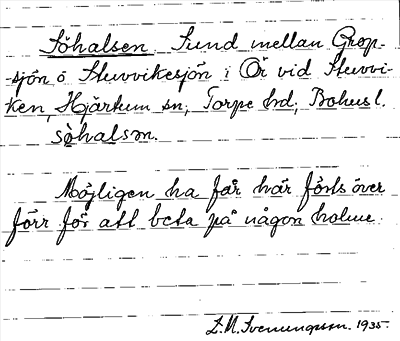 Söhalsen Sund mellan Grop-
-sjön o Stuvvikesjön i Ör vid Stuvvi-
ken, Hjärtum sn, Torpe hd, Bohusl.
sòhalsən.
Möjligen ha får här förts över
förr för att beta på någon holme.
E.N. Svenungsson. 1935.